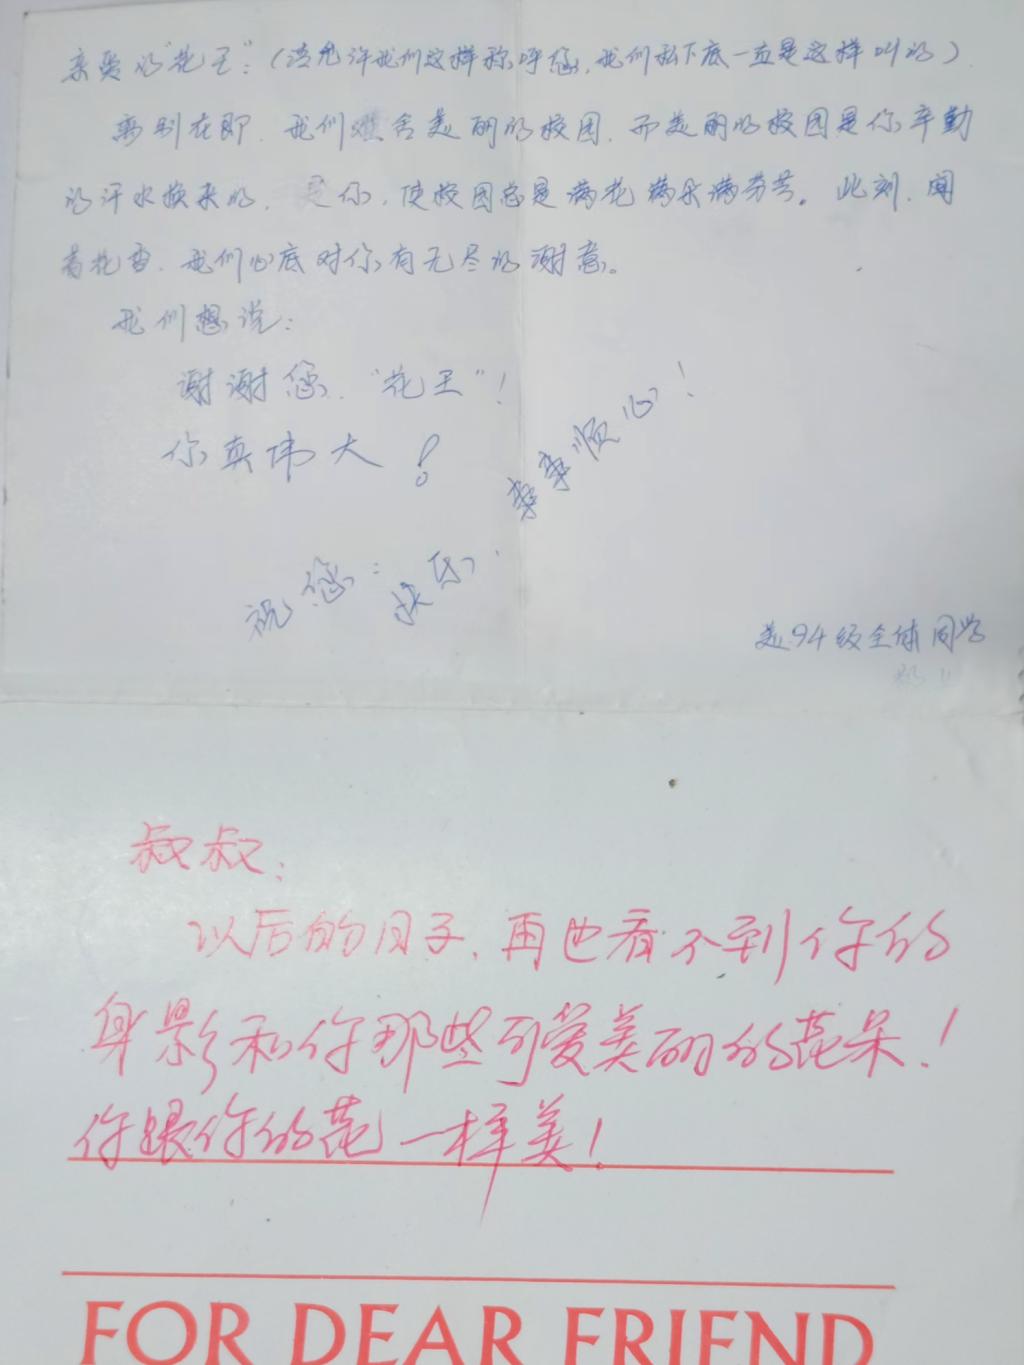 亲爱的"花王":(请允许我们这样称呼您,我们私下底一直是这样叫的)
离别在即,我们难舍美丽的校园,而美丽的校园是你辛勤
的汗水换来的,是你,使校园总是满花满朵满芬芳。此刻,闻
着花香,我们心底对你有无尽的谢意。
我们想说:
谢谢您,"花王"!
你真伟大!
祝您:快乐,事事顺心!
美94级全体同学
叔叔:
以后的日子,再也看不到你的
身影和你那些可爱美丽的花朵!
你跟你的花一样美!
FOR DEAR FRIEND